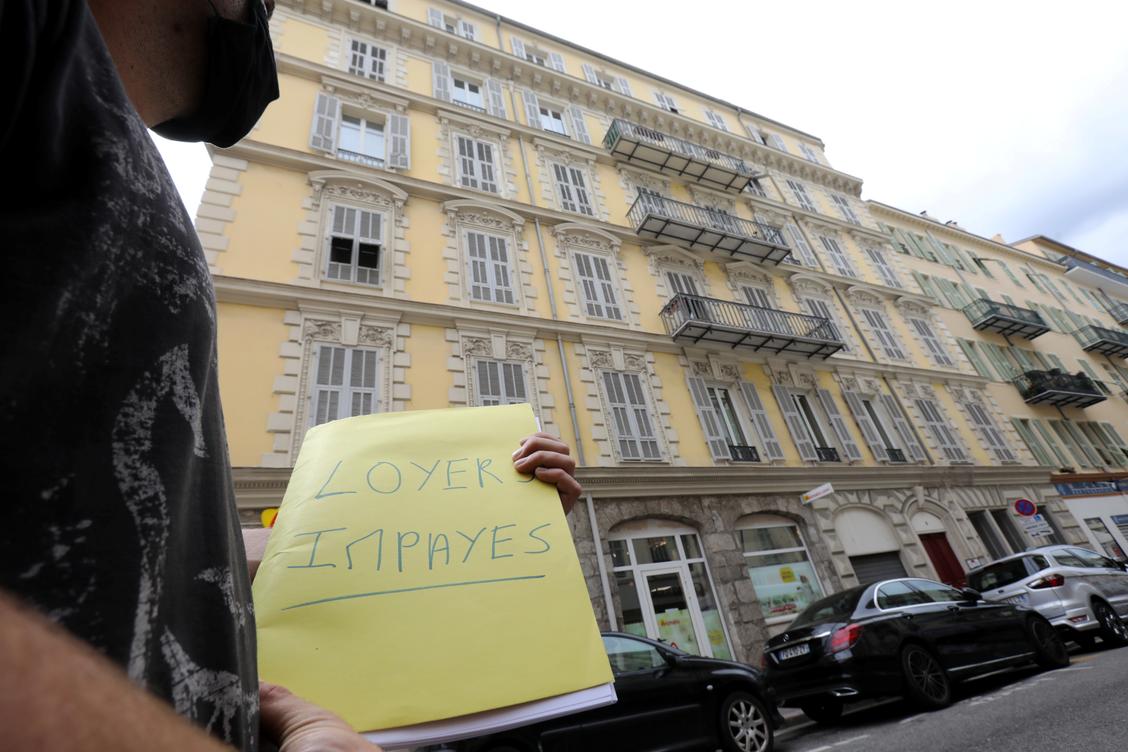 LOYERS
IMPAYES